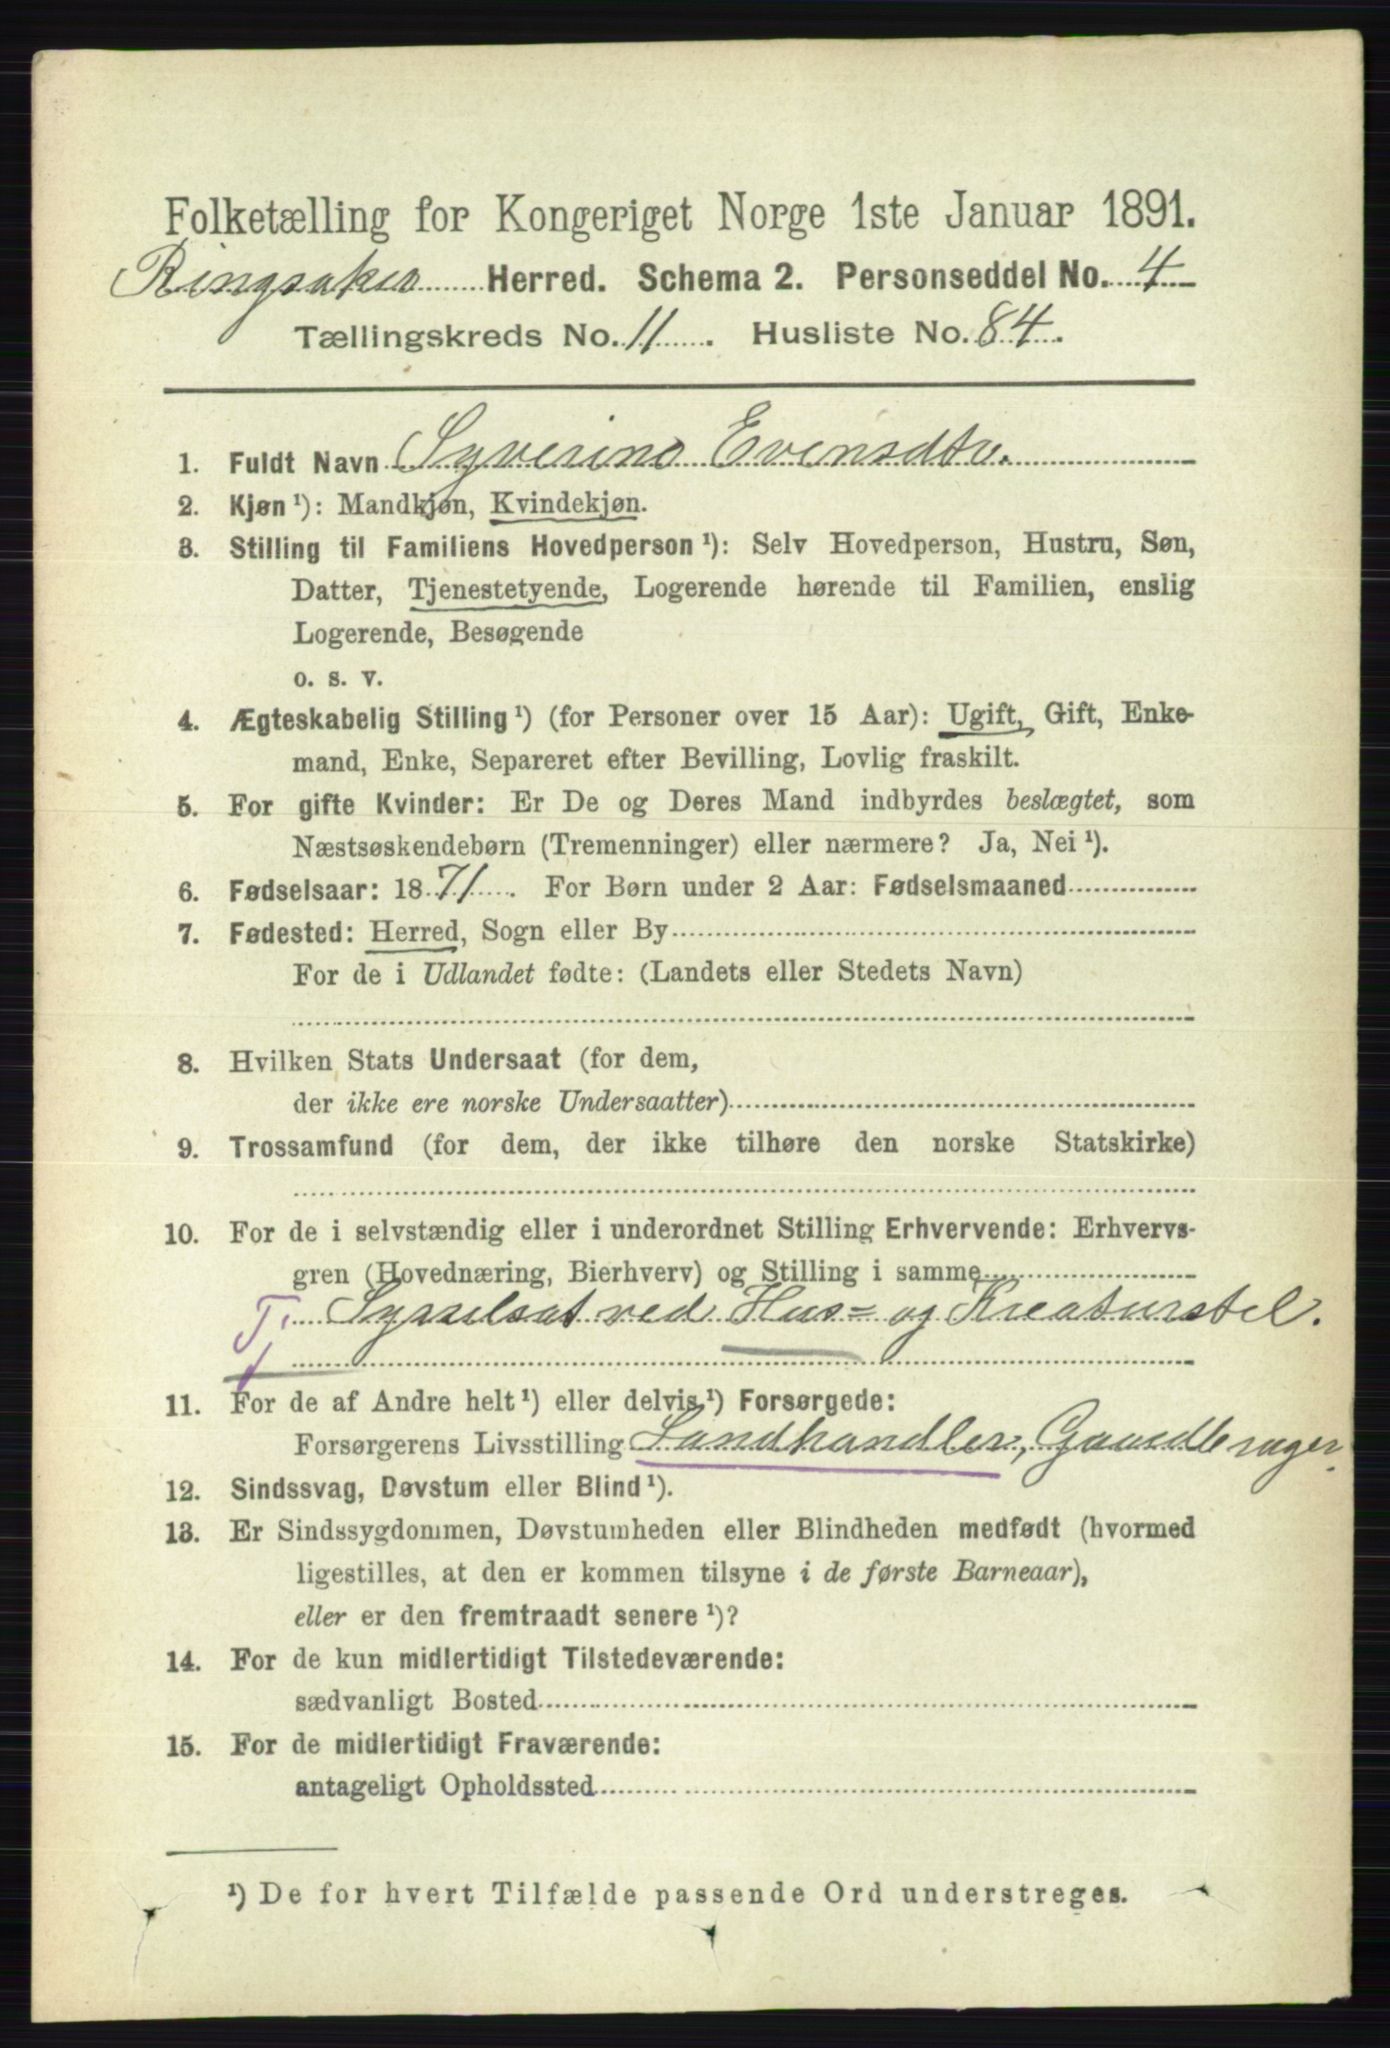 Folketælling for Kongeriget Norge 1ste Januar 1891.
Ringsaker Herred. Schema 2. Personseddel No. 4
Tællingskreds No. 11. Husliste No. 84.
1. Fuldt Navn Syverine Evensdtr.
2. Kjøn ¹): Mandkjøn, Kvindekjøn.
3. Stilling til Familiens Hovedperson ¹): Selv Hovedperson, Hustru, Søn,
Datter, Tjenestetyende, Logerende hørende til Familien, enslig
Logerende, Besøgende
o. s. v.
4. Ægteskabelig Stilling ¹) (for Personer over 15 Aar): Ugift, Gift, Enke-
mand, Enke, Separeret efter Bevilling, Lovlig fraskilt.
5. For gifte Kvinder: Er De og Deres Mand indbyrdes beslægtet, som
Næstsøskendebørn (Tremenninger) eller nærmere? Ja, Nei ¹).
6. Fødselsaar: 1871. For Børn under 2 Aar: Fødselsmaaned
7. Fødested: Herred, Sogn eller By
For de i Udlandet fødte: (Landets eller Stedets Navn)
8. Hvilken Stats Undersaat (for dem,
der ikke ere norske Undersaatter)
9. Trossamfund (for dem, der ikke tilhøre den norske Statskirke)
10. For de i selvstændig eller i underordnet Stilling Erhvervende: Erhvervs-
gren (Hovednæring, Bierhverv) og Stilling i samme
Tj Sysselsat ved Hus= og Kreaturstel.
11. For de af Andre helt ¹) eller delvis ¹) Forsørgede:
Forsørgerens Livsstilling Landhandler, Gaardbruger
12. Sindssvag, Døvstum eller Blind ¹).
13. Er Sindssygdommen, Døvstumheden eller Blindheden medfødt (hvormed
ligestilles, at den er kommen tilsyne i de første Barneaar),
eller er den fremtraadt senere ¹)?
14. For de kun midlertidigt Tilstedeværende:
sædvanligt Bosted
15. For de midlertidigt Fraværende:
antageligt Opholdssted
¹) De for hvert Tilfælde passende Ord understreges.